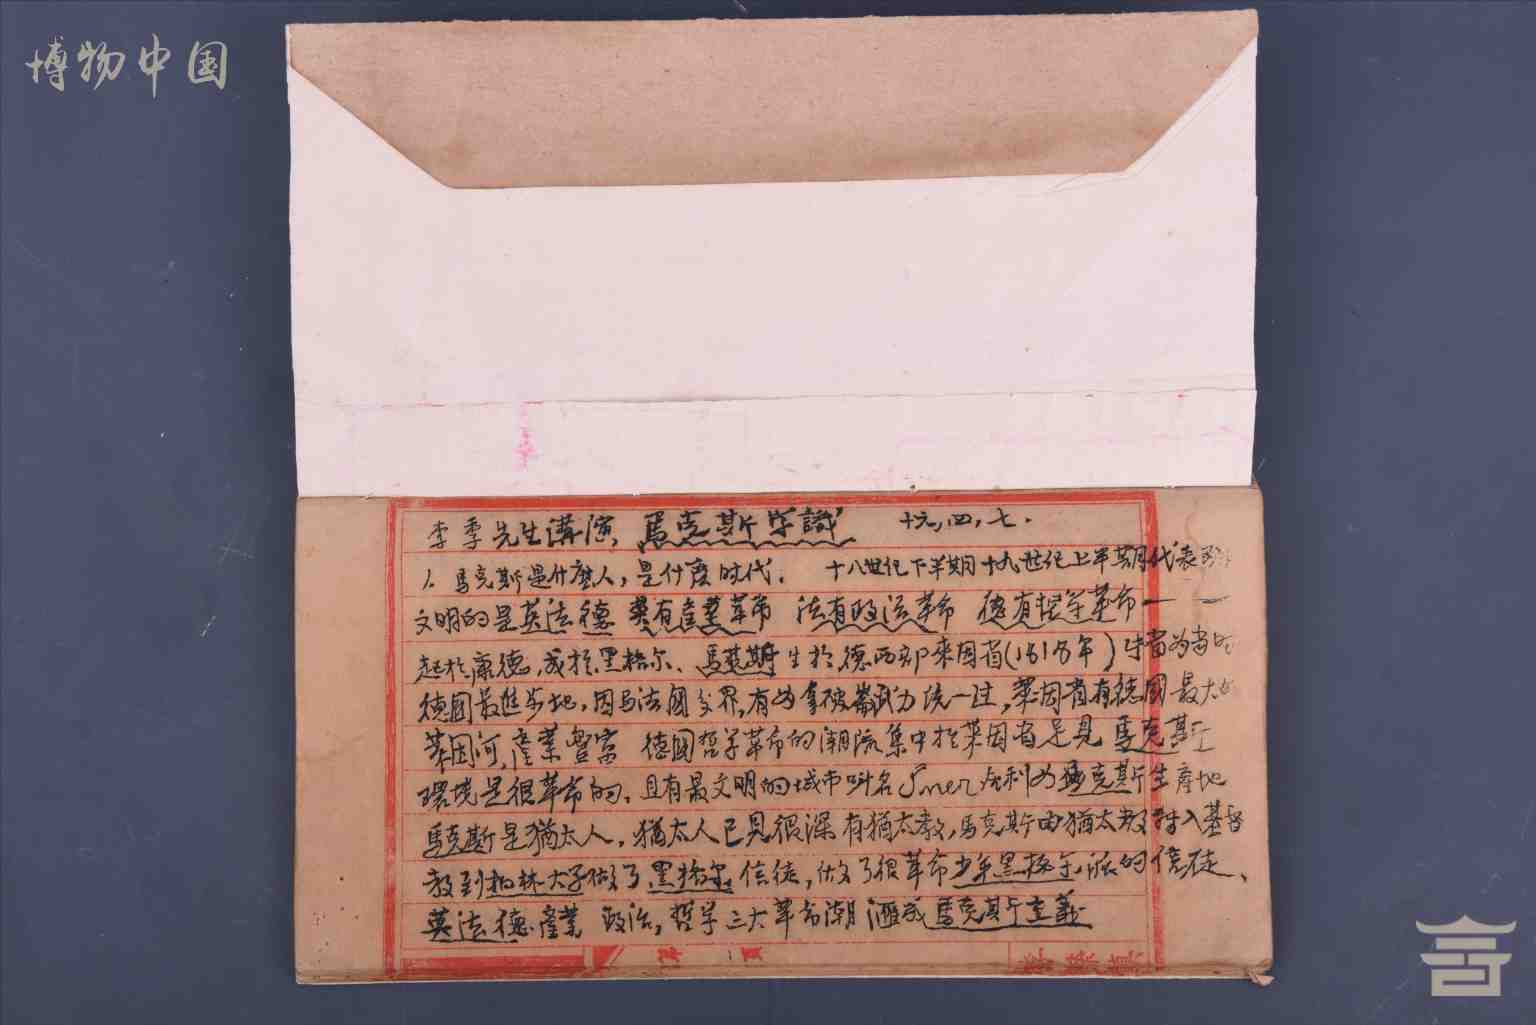 博物中国
李季先生講演，馬克斯学識 十六，四，七．
1. 馬克斯是什麽人，是什麽时代． 十八世纪下半期十九世纪上半期代表
文明的是英法德 英有產業革命 法有政治革命 德有哲学革命——
起於康德，成於黑格尔、馬克斯生於德西部來因省(1818年)
德國最進步地，因与法國交界，有为拿破崙武力统一过，萊因省有德國最大
萊因河，產業豐富 德國哲学革命的潮流集中於萊因省足見馬克斯
環境是很革命的，且有最文明的城市叫名 馬克斯生產地
馬克斯是猶太人，猶太人已見很深有猶太教，馬克斯由猶太教 入基督
教到柏林大学做了黑格尔信徒，做了很革命少年黑格尔派的信徒、
英法德產業 政治，哲学三大革命潮 滙成馬克斯主義
第 一 頁